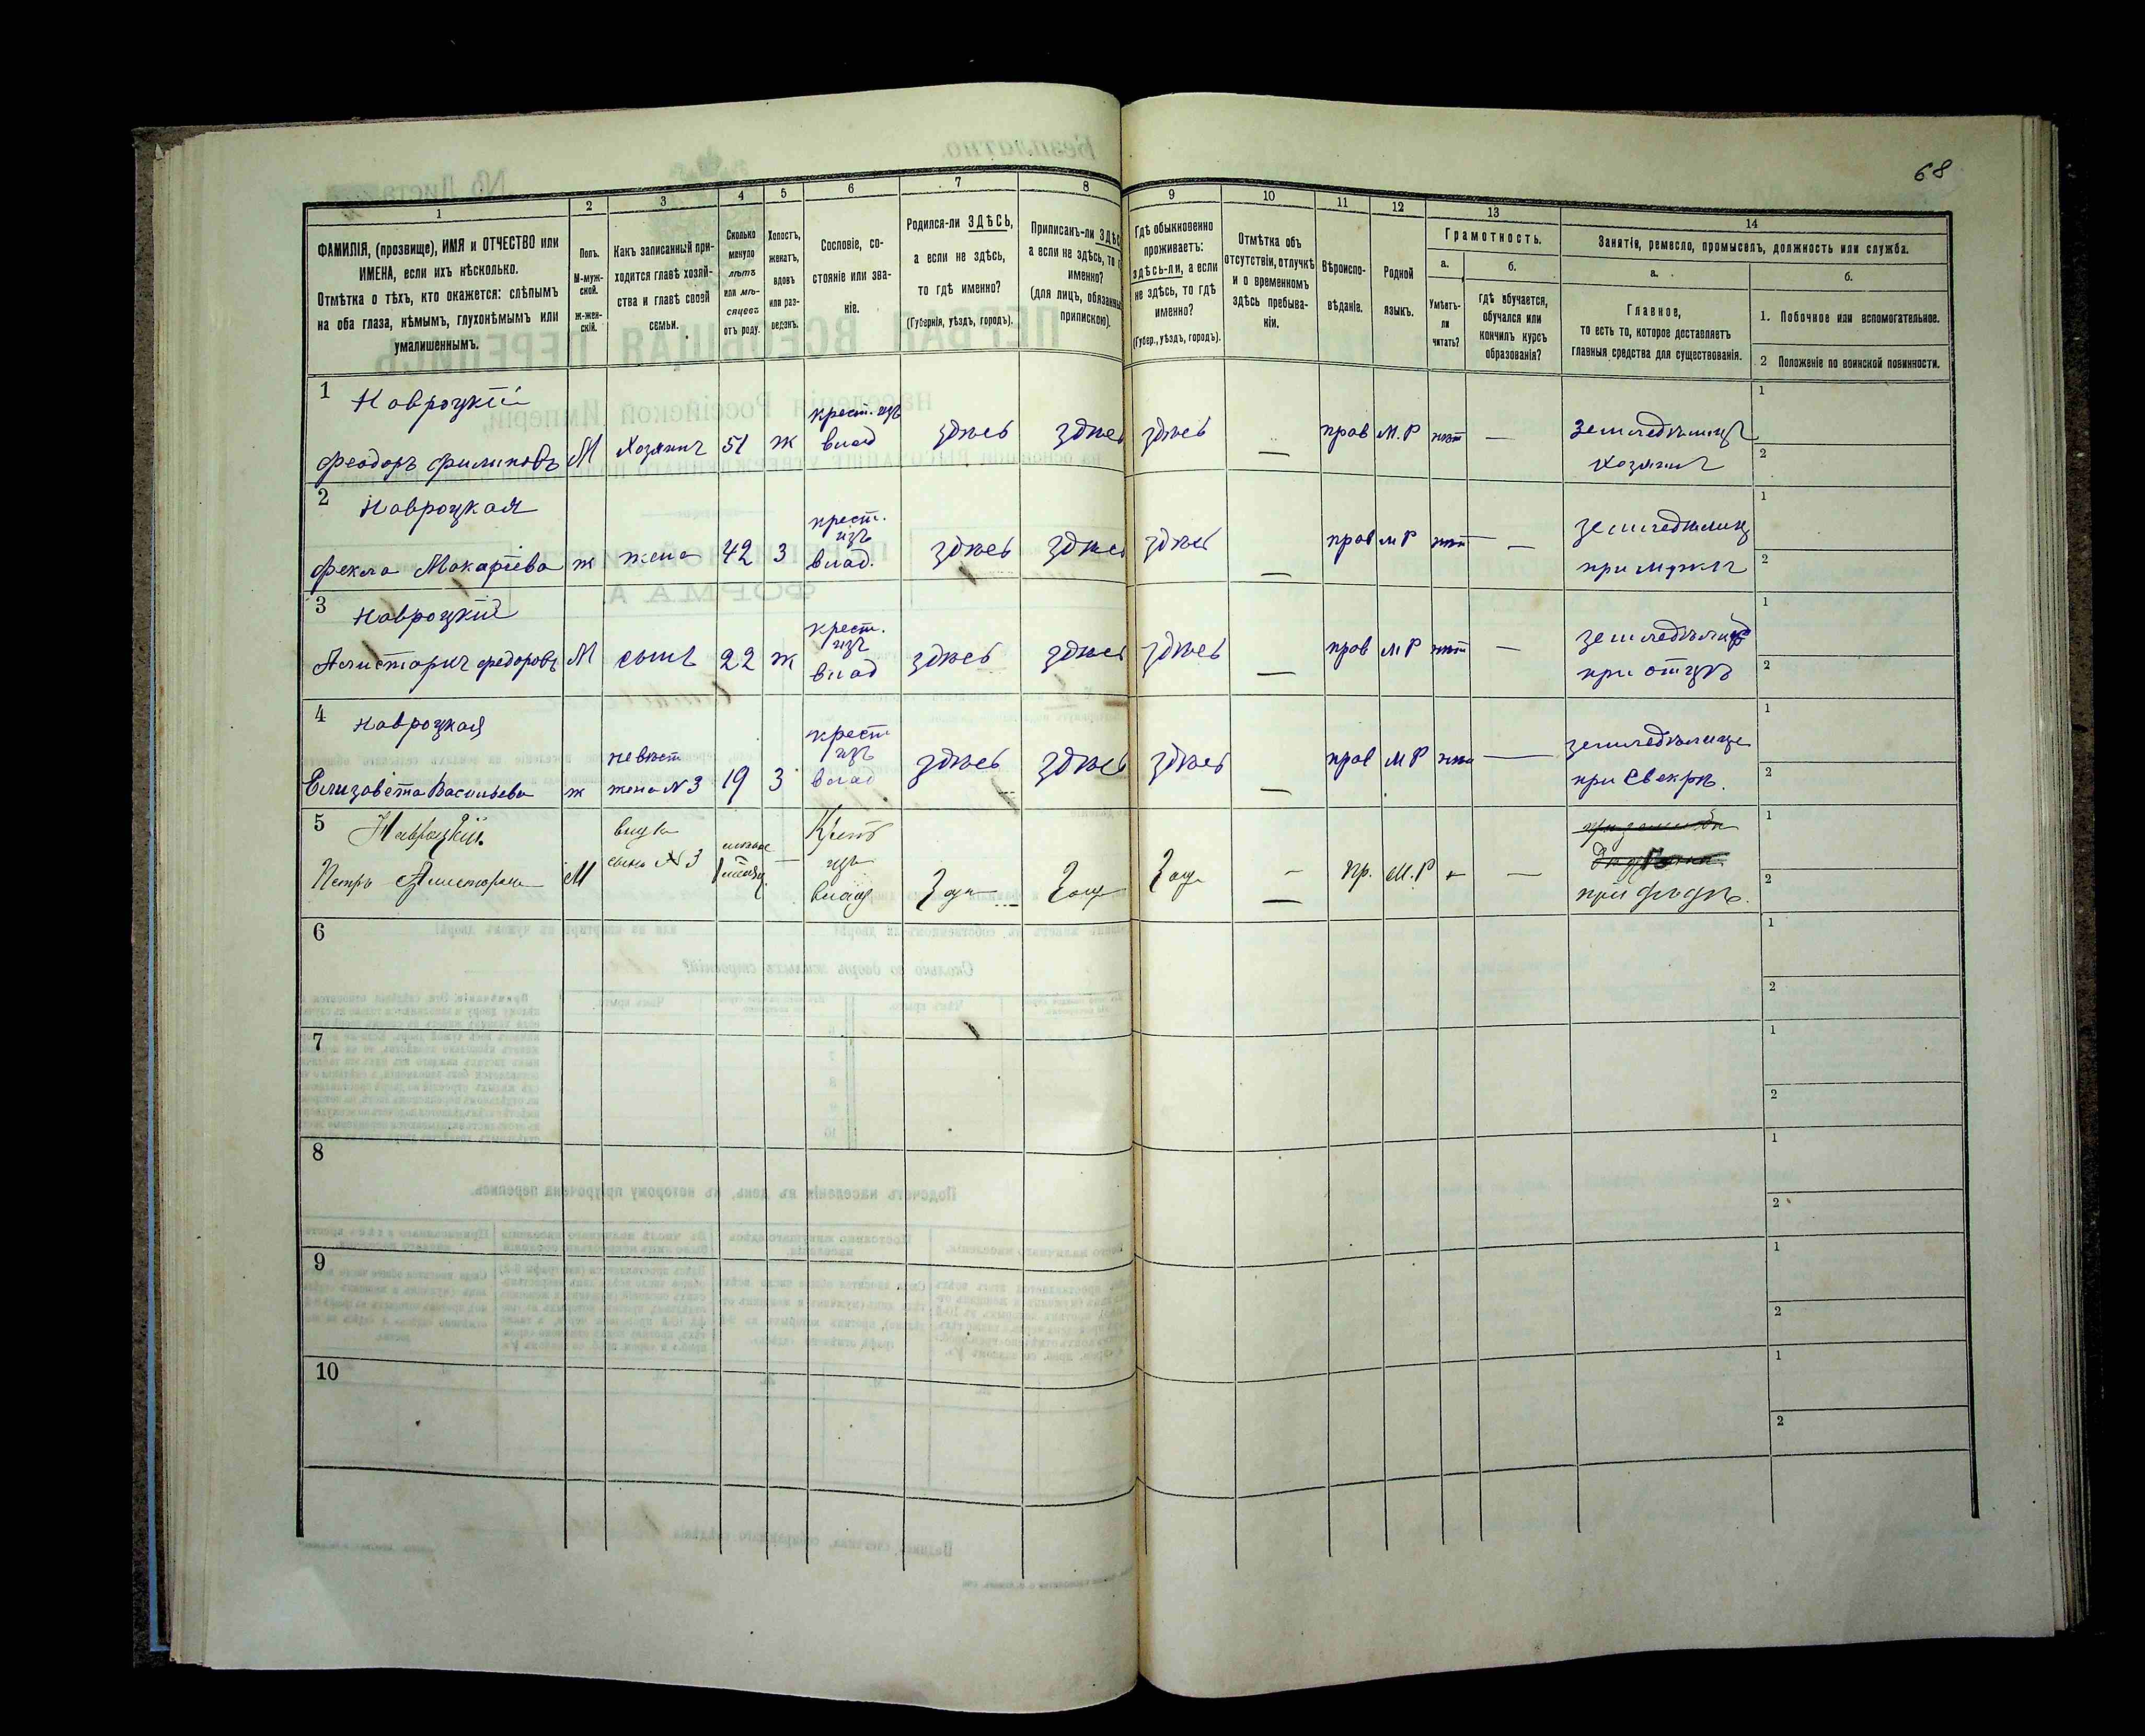 68
1
2
3
4
5
6
7
8
9
10
11
12
13
14
ФАМИЛІЯ, (прозвище), ИМЯ и ОТЧЕСТВО или
ИМЕНА, если ихъ нѣсколько.
Отмѣтка о тѣхъ, кто окажется: слѣпымъ
на оба глаза, нѣмымъ, глухонѣмымъ или
умалишеннымъ.
Полъ.
М-муж-
ской.
ж-жен-
скій.
Какъ записанный при-
ходится главѣ хозяй-
ства и главѣ своей
семьи.
Сколько
минуло
лѣтъ
или мѣ-
сяцевъ
отъ роду.
Холостъ,
женатъ,
вдовъ
или раз-
веденъ.
Сословіе, со-
стояніе или зва-
ніе.
Родился-ли ЗДѢСЬ,
а если не здѣсь,
то гдѣ именно?
(Губернія, уѣздъ, городъ).
Приписанъ-ли
а если не здѣсь, то
именно?
(для лицъ,
припискою).
Гдѣ обыкновенно
проживаетъ:
здѣсь-ли, а если
не здѣсь, то гдѣ
именно?
(Губер., уѣздъ, городъ).
Отмѣтка объ
отсутствіи, отлучкѣ
и о временномъ
здѣсь пребыва-
ніи.
Вѣроиспо-
вѣданіе.
Родной
языкъ.
Грамотность.
а.
б.
Умѣетъ-
ли
читать?
Гдѣ обучается,
обучался или
кончилъ курсъ
образованія?
Занятія, ремесло, промыселъ, должность или служба.
а.
б.
Главное,
то есть то, которое доставляетъ
главныя средства для существованія.
1. Побочное или вспомогательное.
2 Положеніе по воинской повинности.
1
Навроцкій
Феодоръ Филиповъ
М
Хозяинъ
51
ж
крест. изъ
влад
здѣсь
здѣсь
здѣсь
—
прав
М.Р
нѣт
—
земледѣлецъ
Хозяинъ
1
2
2
Навроцкая
Фекла Макаріева
ж
жена
42
З
крест.
изъ
влад.
здѣсь
здѣсь
здѣсь
—
прав
М Р
нѣт
—
при мужѣ
1
2
3
Навроцкій
М
сынъ
22
ж
крест.
изъ
влад
здѣсь
здѣсь
здѣсь
—
прав
М Р
нѣт
—
при отцѣ
1
2
4
Навроцкая
Елизовета Васильева
ж
невѣст
жена N 3
19
З
крест
изъ
влад
здѣсь
здѣсь
здѣсь
—
прав
М Р
—
при свекрѣ.
1
2
5
Навроцкій.
Петръ
М
внукъ
сынъ N 3
—
изъ
влад
—
пр.
М.Р
—
при дѣдѣ.
1
2
6
1
2
7
1
2
8
1
2
9
1
2
10
1
2